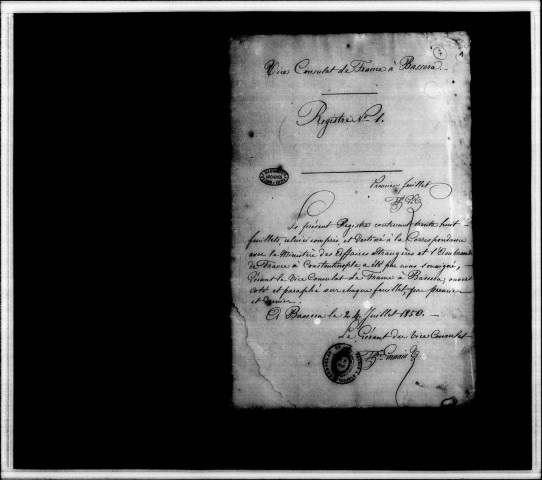 Vice Consulat de France à Bassora
Registre No 1.
Premier feuillet
Le présent Registre contenant trente huit
feuillets, celui-ci compris, et destiné à la Correspondance
avec le Ministère des Affaires Etrangères et l'Ambassade
de France à Constantinople a été par nous soussigné,
Gérant le Vice Consulat de France à Bassora, ouvert
coté et paraphé sur chaque feuillet, par premier
et dernier.
A Bassora le 24 Juillet 1850.
Le Gérant du Vice Consulat